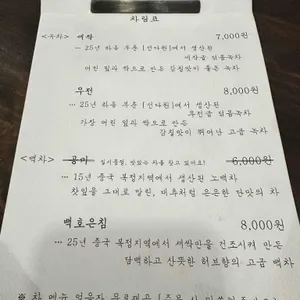 차림표
<녹차> 세작 7,000원
… 25년 하동 무릉 [선다원]에서 생산된
세작급 덖음녹차
어린 잎과 싹으로 만든 감칠맛이 좋은 녹차
우전 8,000원
… 25년 하동 무릉 [선다원]에서 생산된
우전급 덖음녹차
가장 여린 잎과 싹으로 만든
감칠맛이 뛰어난 고급 녹차
<백차> 공미 일시품절, 맛있는 차를 찾고 있어요! 6,000원
… 15년 중국 복정지역에서 생산된 노백차
찻잎을 그대로 말린, 대추처럼 은은한 단맛의 차
백호은침 8,000원
… 25년 중국 복정지역에서 새싹만을 건조시켜 만든
담백하고 산뜻한 허브향의 고급 백차
※ 차 메뉴